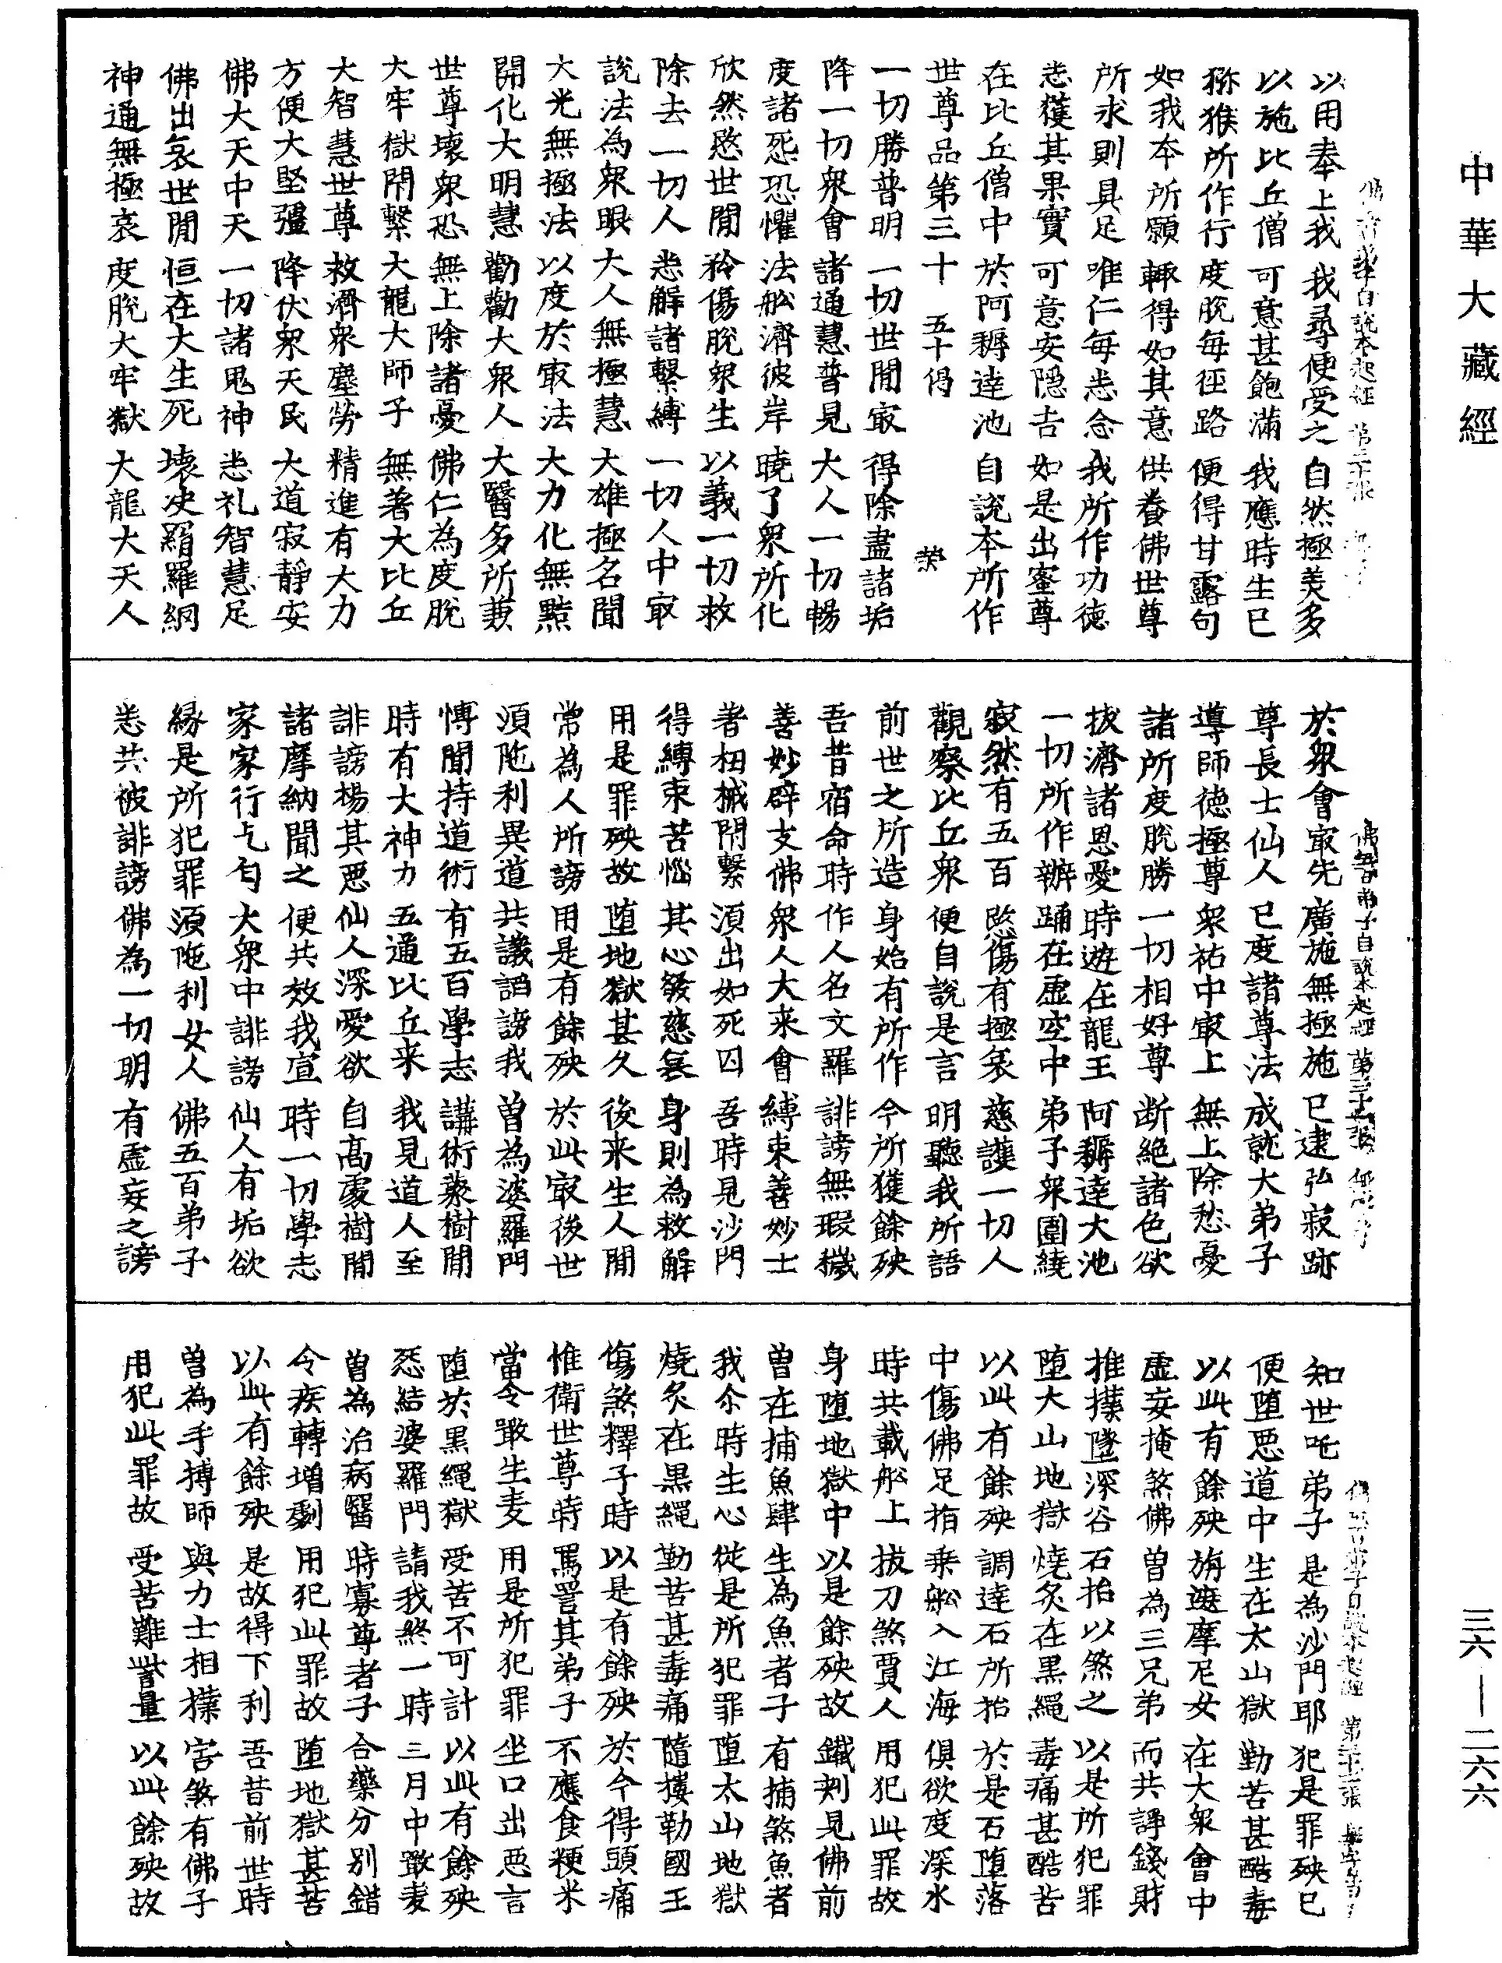 中華大藏經
以用奉上我 我尋便受之 自然極美多
以施比丘僧 可意甚飽滿 我應時生已
猕猴所作行 度脫每徑路 便得甘露句
如我本所願 輒得如其意 供養佛世尊
所求則具足 唯仁每悉念 我所作功德
悉獲其果實 可意安隱吉 如是出蜜尊
在比丘僧中 於阿耨達池 自說本所作
世尊品第三十 五十偈
一切勝普明 一切世間㝡 得除盡諸垢
降一切眾會 諸通慧普見 大人一切暢
度諸恐懼 法舩濟彼岸 曉了眾所化
欣然愍世間 矜傷脫眾生 以義一切救
除去一切人 悉解諸繫縛 一切人中㝡
說法為眾眼 大人無極慧 大雄極名聞
大光無極法 以度於㝡法 大力化無黠
開化大明慧 勸勸大眾人 大醫多所兼
世尊壞眾恐 無上除諸憂 佛仁為度脫
大牢獄閉繫 大龍大師子 無著大比丘
大智慧世尊 救濟眾塵勞 精進有大力
方便大堅彊 降伏眾天民 大道寂靜安
佛大天中天 一切諸鬼神 悉礼智慧足
佛出哀世間 恒在大生死 壞決羂羅網
神通無極哀 度脫大牢獄 大龍大天人
於眾會㝡先 廣施無極施 已逮弘寂跡
尊長士仙人 已度諸尊法 成就大弟子
導師德極尊 眾祐中㝡上 無上除愁憂
諸所度脫勝 一切相好尊 断絕諸色欲
拔濟諸恩愛 時遊在龍王 阿耨達大池
一切所作辦 踊在虛空中 弟子眾圍繞
寂然有五百 愍傷有極哀 慈護一切人
觀察比丘眾 便自說是言 明聽我所語
前世之所造 身始有所作 今所獲餘殃
吾昔宿命時 作人名文羅 誹謗無瑕穢
善妙辟支佛 眾人大来會 縛束善妙士
著杻械閉繫 湏出如死囚 吾時見沙門
得縛束苦惱 其心發慈哀 身則為救解
用是罪殃故 墮地獄甚久 後来生人間
常為人所謗 用是有餘殃 於此㝡後世
湏陁利異道 共議謟謗我 曽為婆羅門
慱聞持道術 有五百學志 講術藂樹間
時有大神力 五通比丘来 我見道人至
誹謗揚其惡 仙人深愛欲 自高處樹間
諸摩納聞之 便共效我宣 時一切學志
家家行乞匃 大眾中誹謗 仙人有垢欲
緣是所犯罪 湏陁利女人 佛五百弟子
悉共被誹謗 佛為一切明 有虛妄之謗
知世吒弟子 是為沙門耶 犯是罪殃已
便墮惡道中 生在太山獄 勤苦甚酷毒
以此有餘殃 旃遮摩尼女 在大眾會中
虛妄掩煞佛 曽為三兄弟 而共諍錢財
推撲墮深谷 石抬以煞之 以是所犯罪
墮大山地獄 燒炙在黑繩 毒痛甚酷苦
以此有餘殃 調達石所抬 於是石墮落
中傷佛足指 乘舩入江海 俱欲度深水
時共載舩上 拔刀煞賈人 用犯此罪故
身墮地獄中 以是餘殃故 鐵刾見佛前
曽在捕魚肆 生為魚者子 有捕煞魚者
我尒時生心 從是所犯罪 墮太山地獄
燒炙在黑繩 勤苦甚毒痛 隨摟勒國王
傷煞釋子時 以是有餘殃 於今得頭痛
惟衛世尊時 罵詈其弟子 不應食粳米
當令噉生麦 用是所犯罪 坐口出惡言
墮於黑繩獄 受苦不可計 以此有餘殃
惡結婆羅門 請我終一時 三月中噉麦
曽為治病醫 時寡尊者子 合藥分別錯
令疾轉增劇 用犯此罪故 墮地獄甚苦
以此有餘殃 是故得下利 吾昔前世時
曽為手搏師 與力士相撲 害煞有佛子
用犯此罪故 受苦難訾量 以此餘殃故
三六—二六六